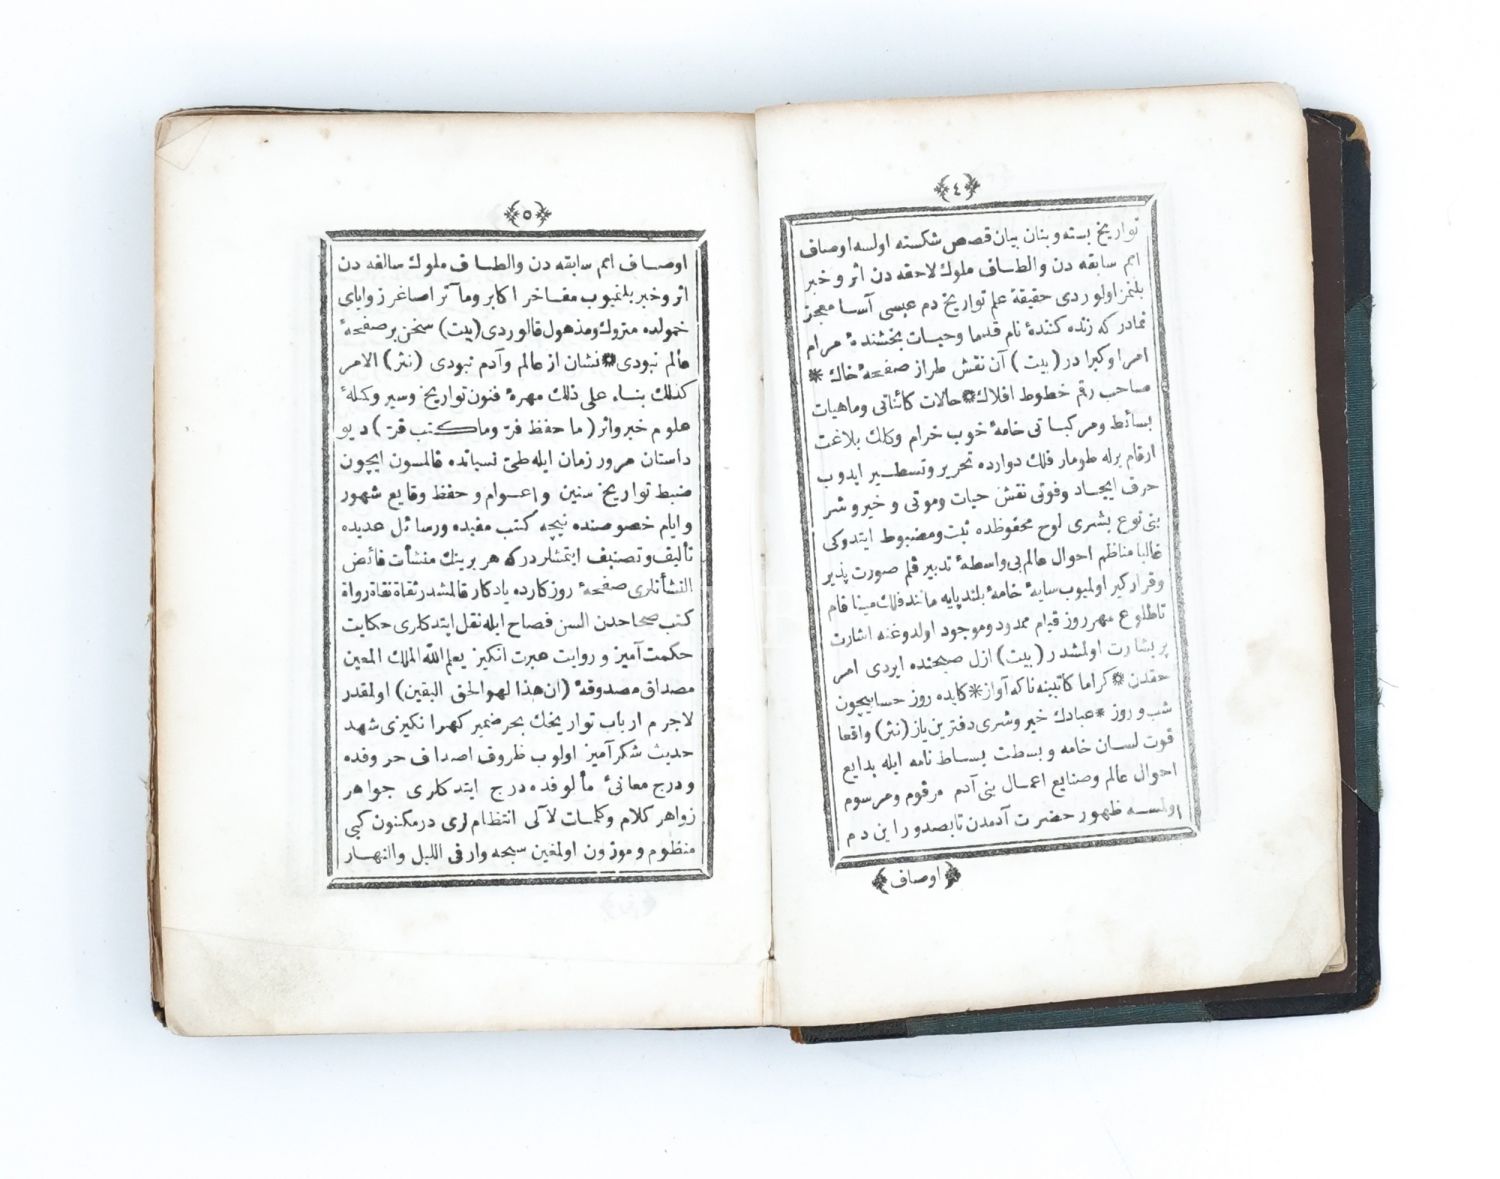 ٤
تواریخ بسته و بنان بیان قصص شکسته اولسه اوصاف
امم سابقه دن والطاف ملوك لاحقه دن اثر و خبر
بلنمز اولوردی حقیقة علم تواریخ دم عیسی آسا معجز
نمادر که زنده کنندۀ نام قدما وحیات بخشندۀ مرام
امرا وکبرا در (بیت) آن نقش طراز صفحۀ خاك *
صاحب رقم خطوط افلاك * حالات کائناتی وماهیات
بسائط ومرکباتی خامۀ خوب خرام وکلك بلاغت
ارقام برله طومار فلك دوارده تحریر وتسطیر ایدوب
حرف ایجاد وفوتی نقش حیات وموتی و خیر وشر
بنی نوع بشری لوح محفوظده ثبت ومضبوط ایتدوکی
غالبا مناظم احوال عالم بی واسطۀ تدبیر قلم صورت پذیر
وقرارکیر اولمیوب سایۀ خامۀ بلند پایه مانند فلك مینا فام
تاطلوع مهر روز قیام ممدود وموجود اولدوغنه اشارت
پر بشارت اولمشدر (بیت) ازل صبحنده ایردی امر
حقدن * کراما کاتبینه ناکه آواز * کابده روز حسابیچون
شب و روز * عبادك خیر وشری دفترین یاز (نثر) واقعا
قوت لسان خامه و بسطت بساط نامه ایله بدایع
احوال عالم وصنایع اعمال بنی آدم مرقوم ومرسوم
اولمسه ظهور حضرت آدمدن تابصدور این دم
اوصاف
٥
اوصاف امم سابقه دن والطاف ملوك سالفه دن
اثر وخبر بلنمیوب مفاخر اکابر ومآثر اصاغر زوایای
خمولده متروك ومذهول قالوردی (بیت) سخن بر صفحۀ
عالم نبودی * نشان از عالم وآدم نبودی (نثر) الامر
کذلك بناء علی ذلك مهرۀ فنون تواریخ وسیر وکملۀ
علوم خبر واثر (ما حفظ فر وما کتب قر) دیو
داستان مرور زمان ایله طی نسیانده قالمسون ایچون
ضبط تواریخ سنین واعوام و حفظ وقایع شهور
وایام خصوصنده نیچه کتب مفیده ورسائل عدیده
تألیف وتصنیف ایتمشلردر که هر برینك منشأت فائض
النشأتلری صفحۀ روزکارده یادکار قالمشدر ثقاة نقاة رواة
کتب صحاحدن السن فصاح ایله نقل ایتدکلری حکایت
حکمت آمیز و روایت عبرت انکیز یعلم الله الملك المعین
مصداق مصدوقۀ (ان هذا لهو الحق الیقین) اولمقدر
لاجرم ارباب تواریخك بحر ضمیر کهر انکیزی شهد
حدیث شکر آمیز اولوب ظروف اصداف حروفده
ودرج معانئ مألوفده درج ایتدکلری جواهر
زواهر کلام وکلمات لآلی انتظاملری در مکنون کبی
منظوم وموزون اولمغین سبحه وار فی اللیل والنهار